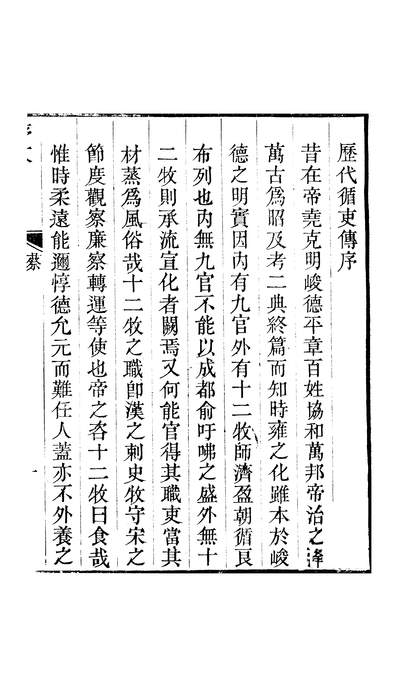 歷代循吏傳序
昔在帝堯克明峻德平章百姓協和萬邦帝治之
萬古爲昭及考二典終篇而知時雍之化雖本於峻
德之明實因內有九官外有十二牧師濟盈朝循良
布列也內無九官不能以成都俞吁咈之盛外無十
二牧則承流宣化者闕焉又何能官得其職吏當其
材蒸爲風俗哉十二牧之職卽漢之刺史牧守宋之
節度觀察廉察轉運等使也帝之咨十二牧曰食哉
惟時柔遠能邇惇德允元而難任人蓋亦不外養之
蔡
一